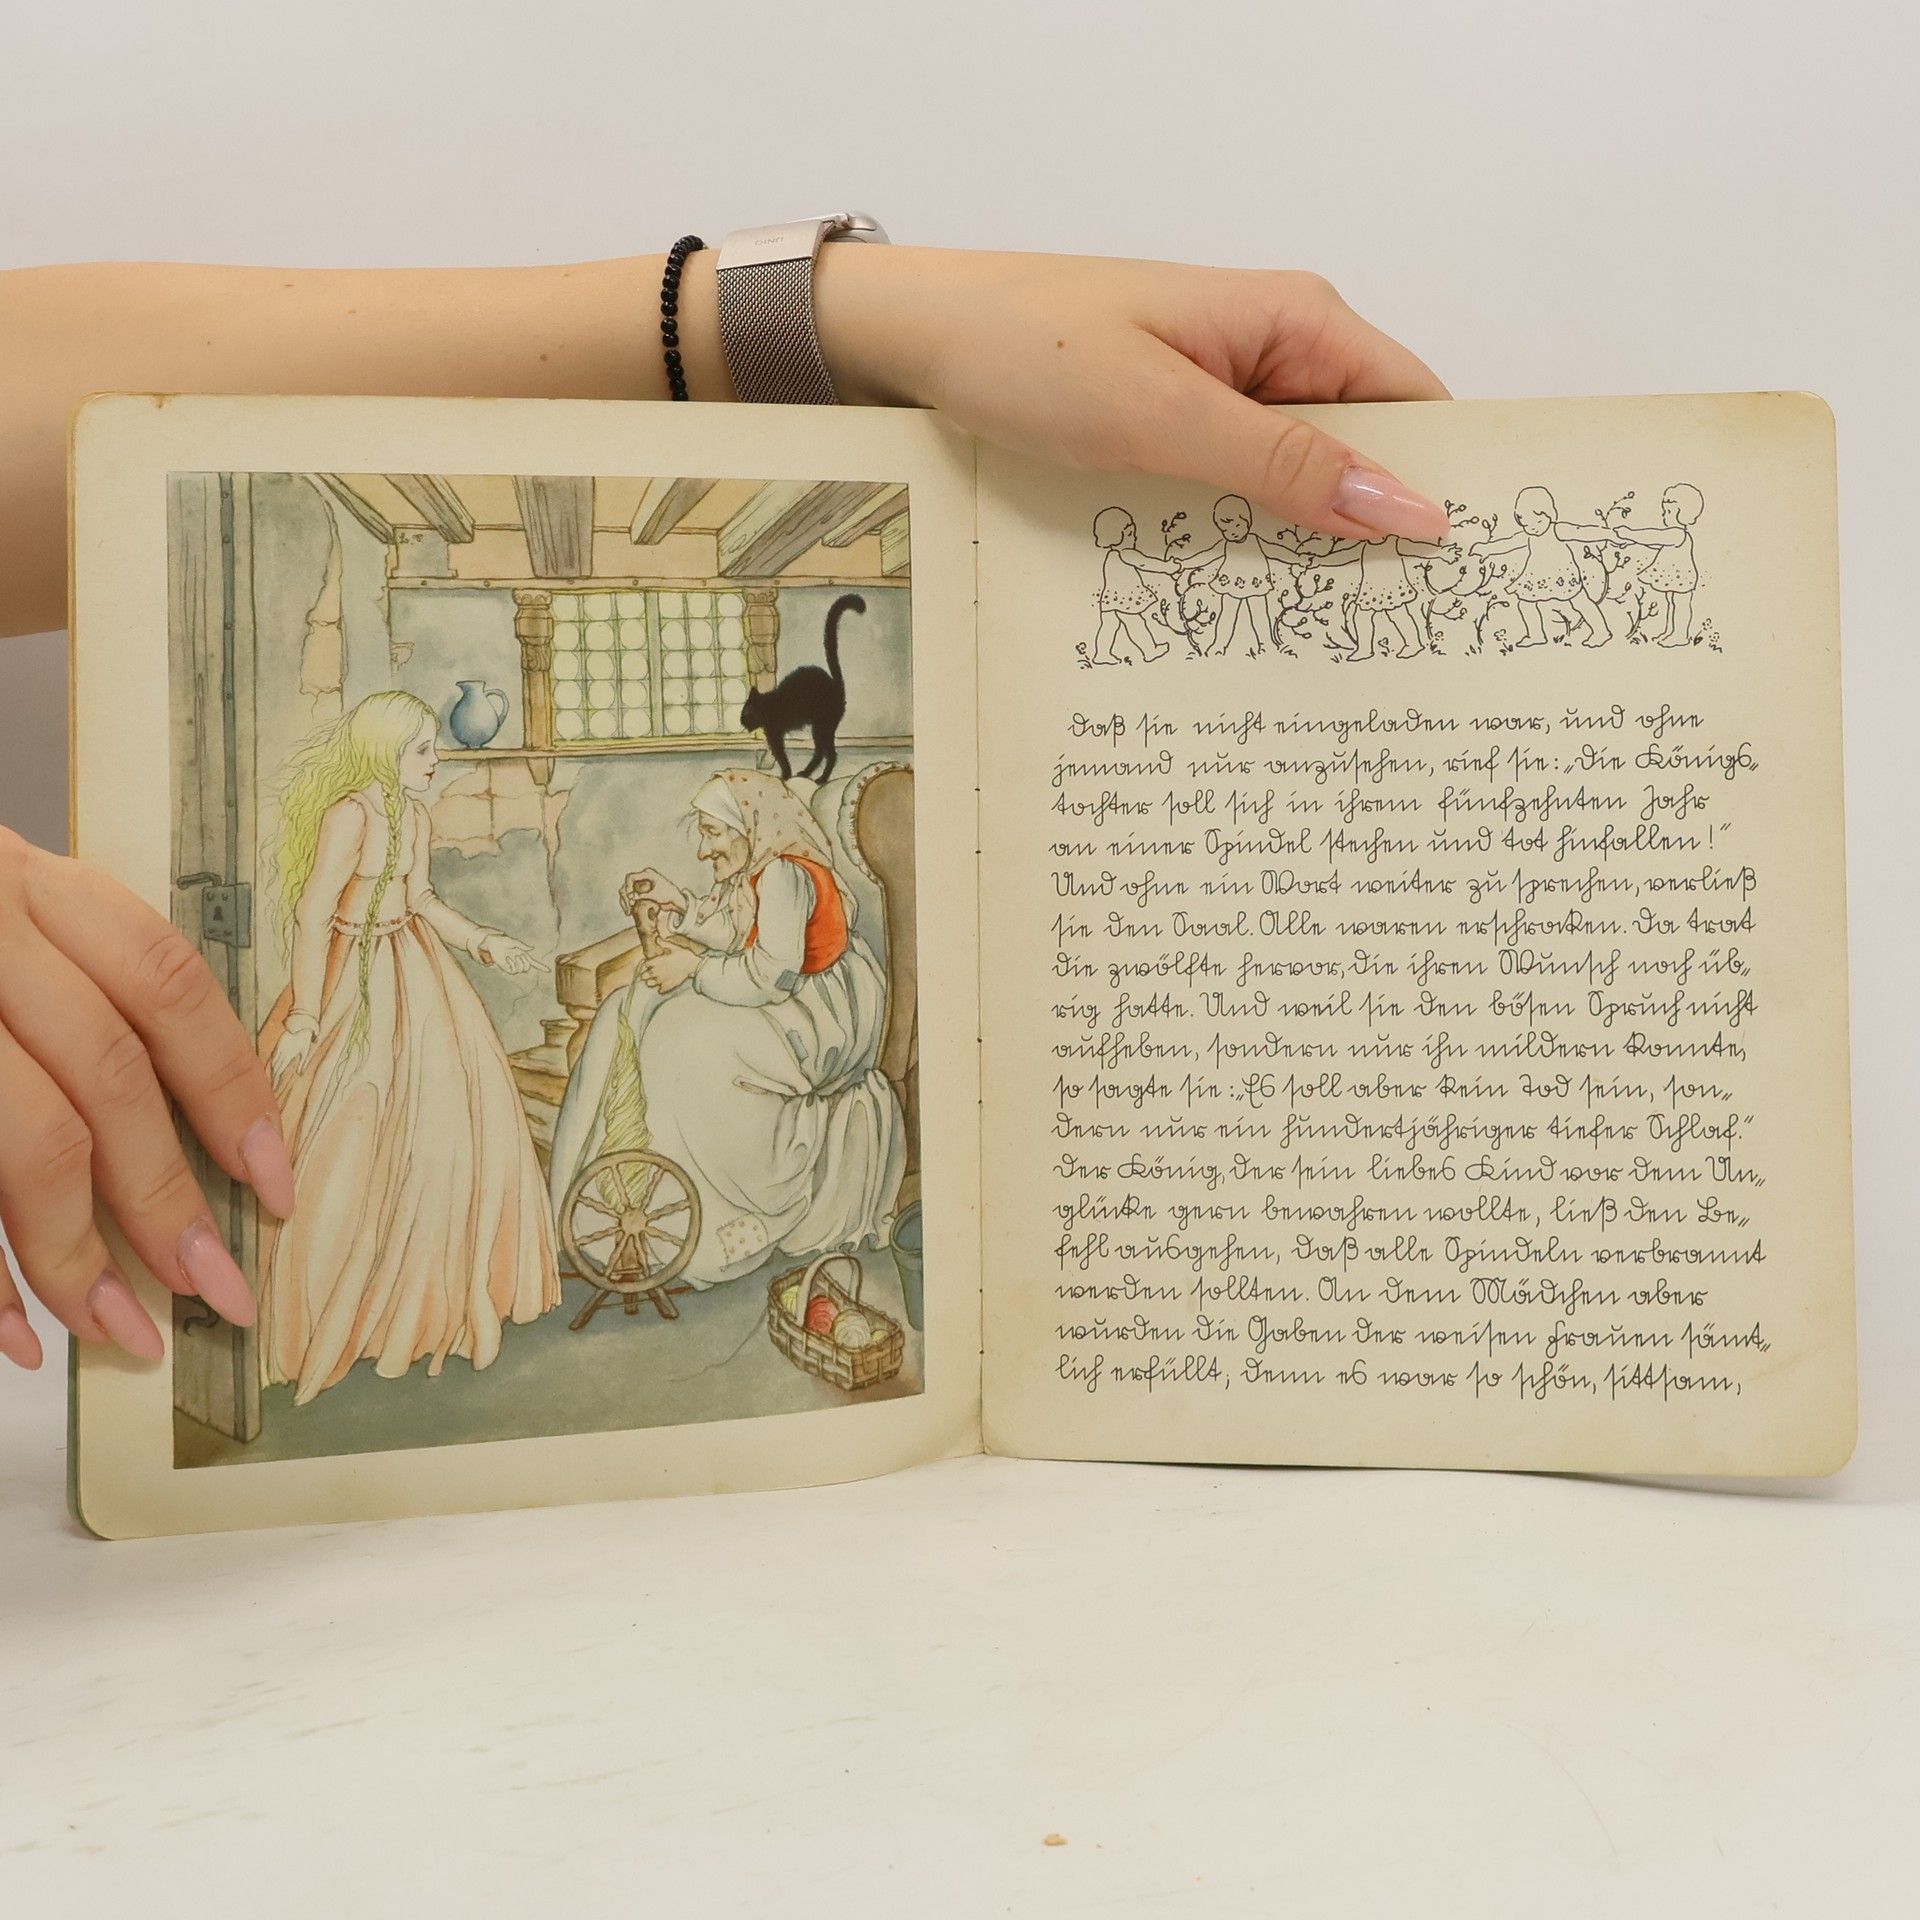 daß sie nicht eingeladen war, und ohne
jemand nur anzusehen, rief sie: „Die Königs„
tochter soll sich in ihrem fünfzehnten Jahr
an einer Spindel stechen und tot hinfallen!“
Und ohne ein Wort weiter zu sprechen, verließ
sie den Saal. Alle waren erschrocken. Da trat
die zwölfte hervor, die ihren Wunsch noch üb„
rig hatte. Und weil sie den bösen Spruch nicht
aufheben, sondern nur ihn mildern konnte,
so sagte sie: „Es soll aber kein Tod sein, son„
dern nur ein hundertjähriger tiefer Schlaf.“
Der König, der sein liebes Kind vor dem Un„
glücke gern bewahren wollte, ließ den Be„
fehl ausgehen, daß alle Spindeln verbrannt
werden sollten. An dem Mädchen aber
wurden die Gaben der weisen Frauen sämt„
lich erfüllt; denn es war so schön, sittsam,